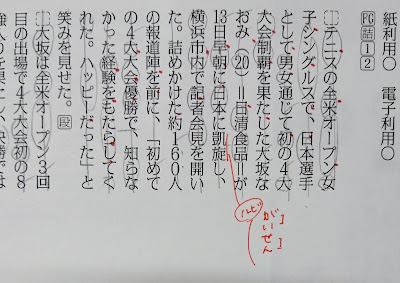 紙利用○　電子利用○
PG詰12
テニスの全米オープン女
子シングルスで、日本選手
として男女通じて初の4大
大会制覇を果たした大坂な
おみ(20)=日清食品=が
13日早朝に日本に凱旋し、
横浜市内で記者会見を開い
た。詰めかけた約160人
の報道陣を前に、「初めて
の4大大会優勝で、知らな
かった経験をもたらしてく
れた。ハッピーだった」と
笑みを見せた。段
大坂は全米オープン3回
目の出場で4大大会初の8
強入りを果たし、決勝では
ルビ
がいせん